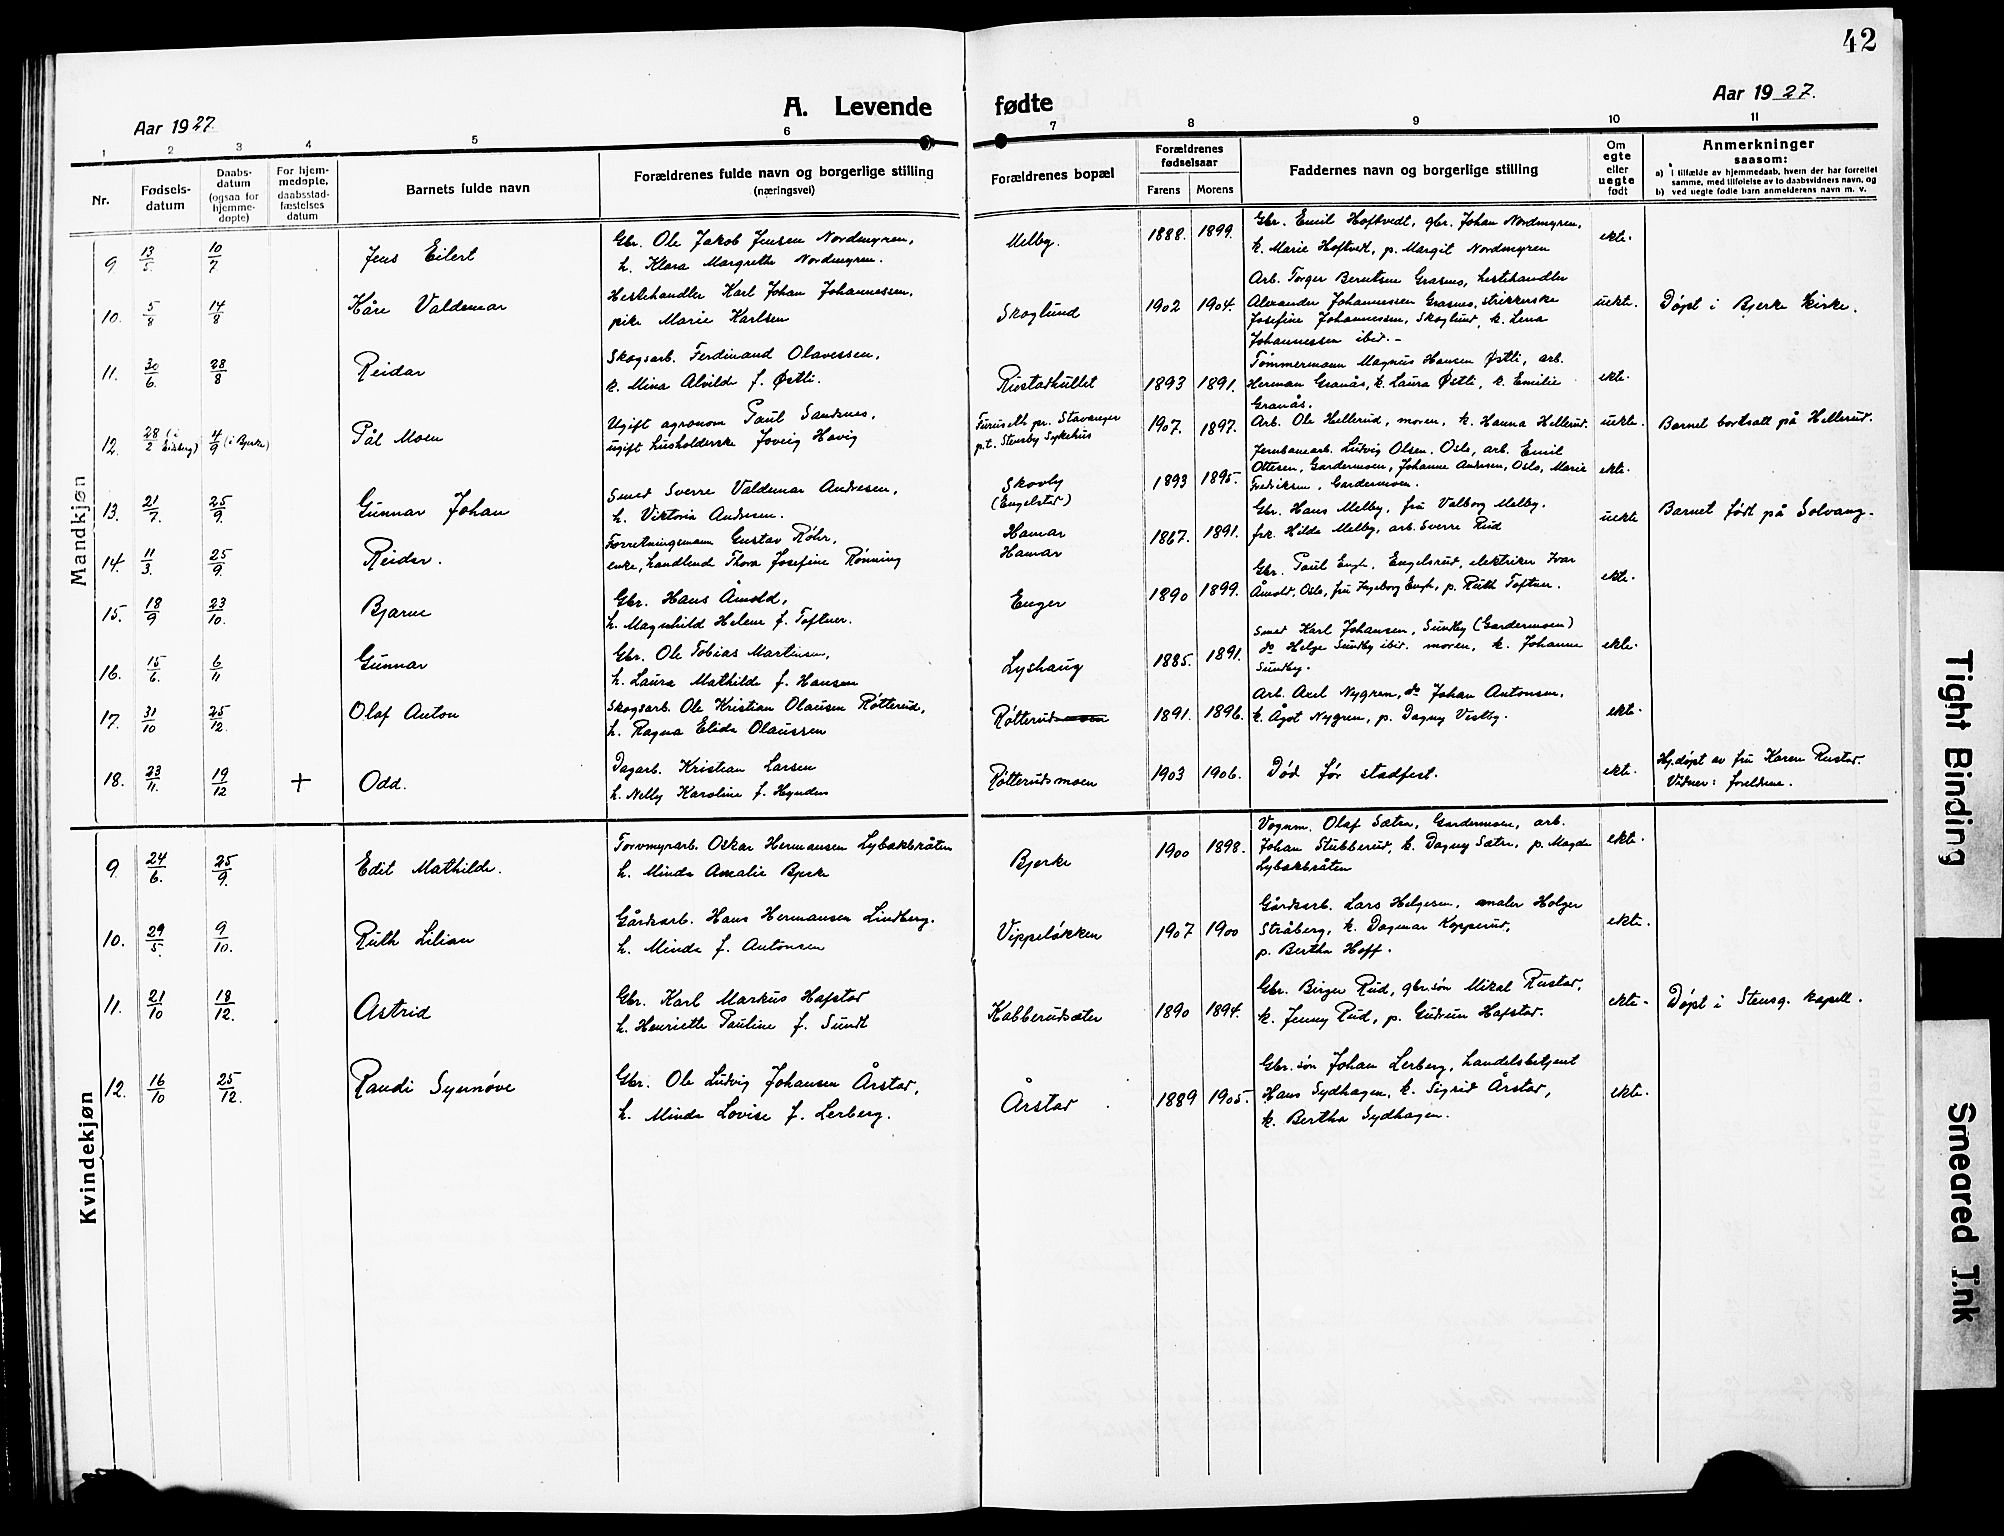 42
A. Levende fødte
Aar 1927.
Aar 1927.
1 2 3 4 5 6 7 8 9 10 11
Nr.
Fødsels-
datum
Daabs-
datum
(ogsaa for
hjemme-
døpte)
For hjem-
medøpte,
daabsstad-
fæstelses
datum
Barnets fulde navn
Forældrenes fulde navn og borgerlige stilling
(næringsvei)
Forældrenes bopæl
Forældrenes
fødselsaar
Farens Morens
Faddernes navn og borgerlige stilling
Om
egte
eller
uegte
født
Anmerkninger
saasom:
a) I tilfælde av hjemmedaab, hvem der har forrettet
samme, med tilføielse av to daabsvidnes navn, og
b) ved uegte fødte barn anmelderens navn m. v.
Mandkjøn
9 13/5 10/7 Jens Eilert
Gbr. Ole Jakob Jensen Nordmyren,
h. Klara Margrethe Nordmyren.
Melby. 1888. 1899.
Gbr. Emil Hoftvedt, gbr. Johan Nordmyren,
k. Marie Hoftvedt, p. Margit Nordmyren
ekte.
10. 5/8 14/8 Kåre Valdemar
Hestehandler Karl Johan Johannessen,
pike Marie Karlsen
Skoglund 1902 1904.
Arb. Torger Berntsen Grasmo, hestehandler
Alexander Johannessen Grasmo, strikkerske
Josefine Johannessen, Skoglund, k. Lena
Johannessen ibid.-
uekte. Døpt i Bjerke Kirke.
11. 30/6. 28/8 Reidar
Skogsarb. Ferdinand Olavessen,
k. Mina Alvilde f. Østli.
Rustadhullet 1893 1891.
Tømmermann Magnus Hansen Østli, arb.
Herman Granås, k. Laura Østli, k. Emilie
Granås.
ekte.
12. 28/2 (i Eidsberg) 4/9 (i Bjerke) Pål Moen
Ugift agronom Paul Sandnes,
ugift husholderske Joveig Havig
Furuseth pr. Stavanger
p.t. Stensby Sykehus
1907. 1897.
Arb. Ole Hellerud, moren, k. Hanna Hellerud.
uekte. Barnet bortsatt på Hellerud.
13. 21/7. 25/9. Gunnar Johan
Smed Sverre Valdemar Andresen,
h. Viktoria Andresen.
Skovly
(Engelstad)
1893 1895.
Jernbanearb. Ludvig Olsen. Oslo, arb. Emil
Ottesen, Gardermoen, Johanne Andresen, Oslo, Marie
Fredriksen, Gardermoen.
ekte.
14. 11/3. 25/9. Reidar.
Forretningsmann Gustav Røhr,
enke, handlend Thora Josefine Rønning
Hamar
Hamar
1867. 1891.
Gbr. Hans Melby, fru Valborg Melby.
frk. Hilda Melby, arb. Sverre Rud
uekte Barnet født på Solvang.
15. 18/9 23/10. Bjarne
Gbr. Hans Åmold,
h. Magnhild Helene f. Toftner.
Enger 1890 1899.
Gbr. Paul Engh, Engelsrud, elektriker Ivar
Åmold, Oslo, fru Ingeborg Engh, p. Ruth Toftner.
ekte.
16. 15/6. 6/11 Gunnar
Gbr. Ole Tobias Martinsen,
h. Laura Mathilde f. Hansen
Lyshaug 1885. 1891.
Smed Karl Johansen, Sundby (Gardermoen)
do Helge Sundby ibid. moren, k. Johanne
Sundby.
ekte.
17. 31/10 25/12. Olaf Anton
Skogsarb. Ole Kristian Olausen Røtterud,
h. Ragna Elida Olaussen
Røtterudmoen 1891. 1896.
Arb. Axel Nygren, do Johan Antonsen,
k. Ågot Nygren, p. Dagny Vestby.
ekte.
18. 23/11. 19/12 + Odd.
Dagarb. Kristian Larsen
h. Nelly Karoline f. Hynden
Røtterudsmoen 1903 1906. Død før stadfest. ekte.
Hj.døpt av fru Karen Rustad.
Vidner: foreldrene.
Kvindekjøn
9 24/6. 25/9. Edit Mathilde.
Torvmyrarb. Oskar Hermansen Lybakbråten
h. Minda Amalie Bjerke
Bjerke 1900 1898.
Vognm. Olaf Sætre, Gardermoen, arb.
Johan Stubberud, k. Dagny Sætre, p. Magda
Lybakbråten
ekte.
10. 29/5. 9/10. Ruth Lilian
Gårdsarb. Hans Hermansen Lindberg.
h. Minda f. Antonsen
Vippeløkken 1907 1900
Gårdsarb. Lars Helgesen, maler Holger
Stråberg, k. Dagmar Kopperud,
p. Bertha Hoff.
ekte.
11. 21/10 18/12. Astrid
Gbr. Karl Markus Hafstad
h. Henriette Pauline f. Sundt
Kabberudsæter 1890 1894.
Gbr. Birger Rud, gbr.søn Mikal Rustad,
k. Jenny Rud, p. Gudrun Hafstad.
ekte. Døpt i Stensg. kapell.
12. 16/10 25/12. Randi Synnøve
Gbr. Ole Ludvig Johansen Årstad,
h. Minda Lovise f. Lerberg.
Årstad 1889 1905.
Gbr.søn Johan Lerberg, handelsbetjent
Hans Sydhagen, k. Sigrid Årstad,
k. Bertha Sydhagen.
ekte.
Tight Binding
Smeared Ink